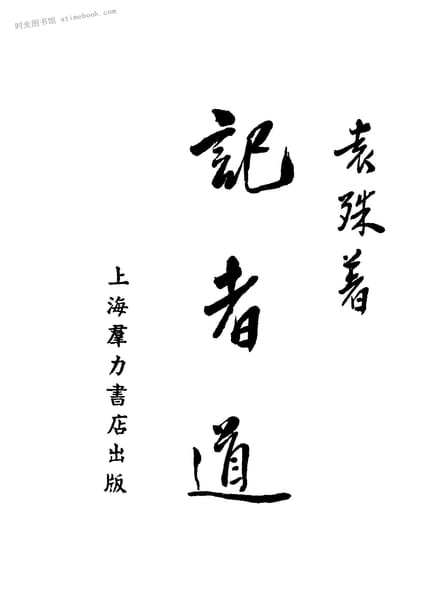 时光图书馆 atimebook.com
袁殊着
記者道
上海羣力書店出版